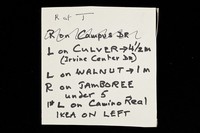 R at T
R on Campus DR
L on CULVER → 4/2m
(Irvine Center DR)
L on WALNUT → 1m
R on JAMBOREE
under 5
1st L on Camino Real
IKEA ON LEFT